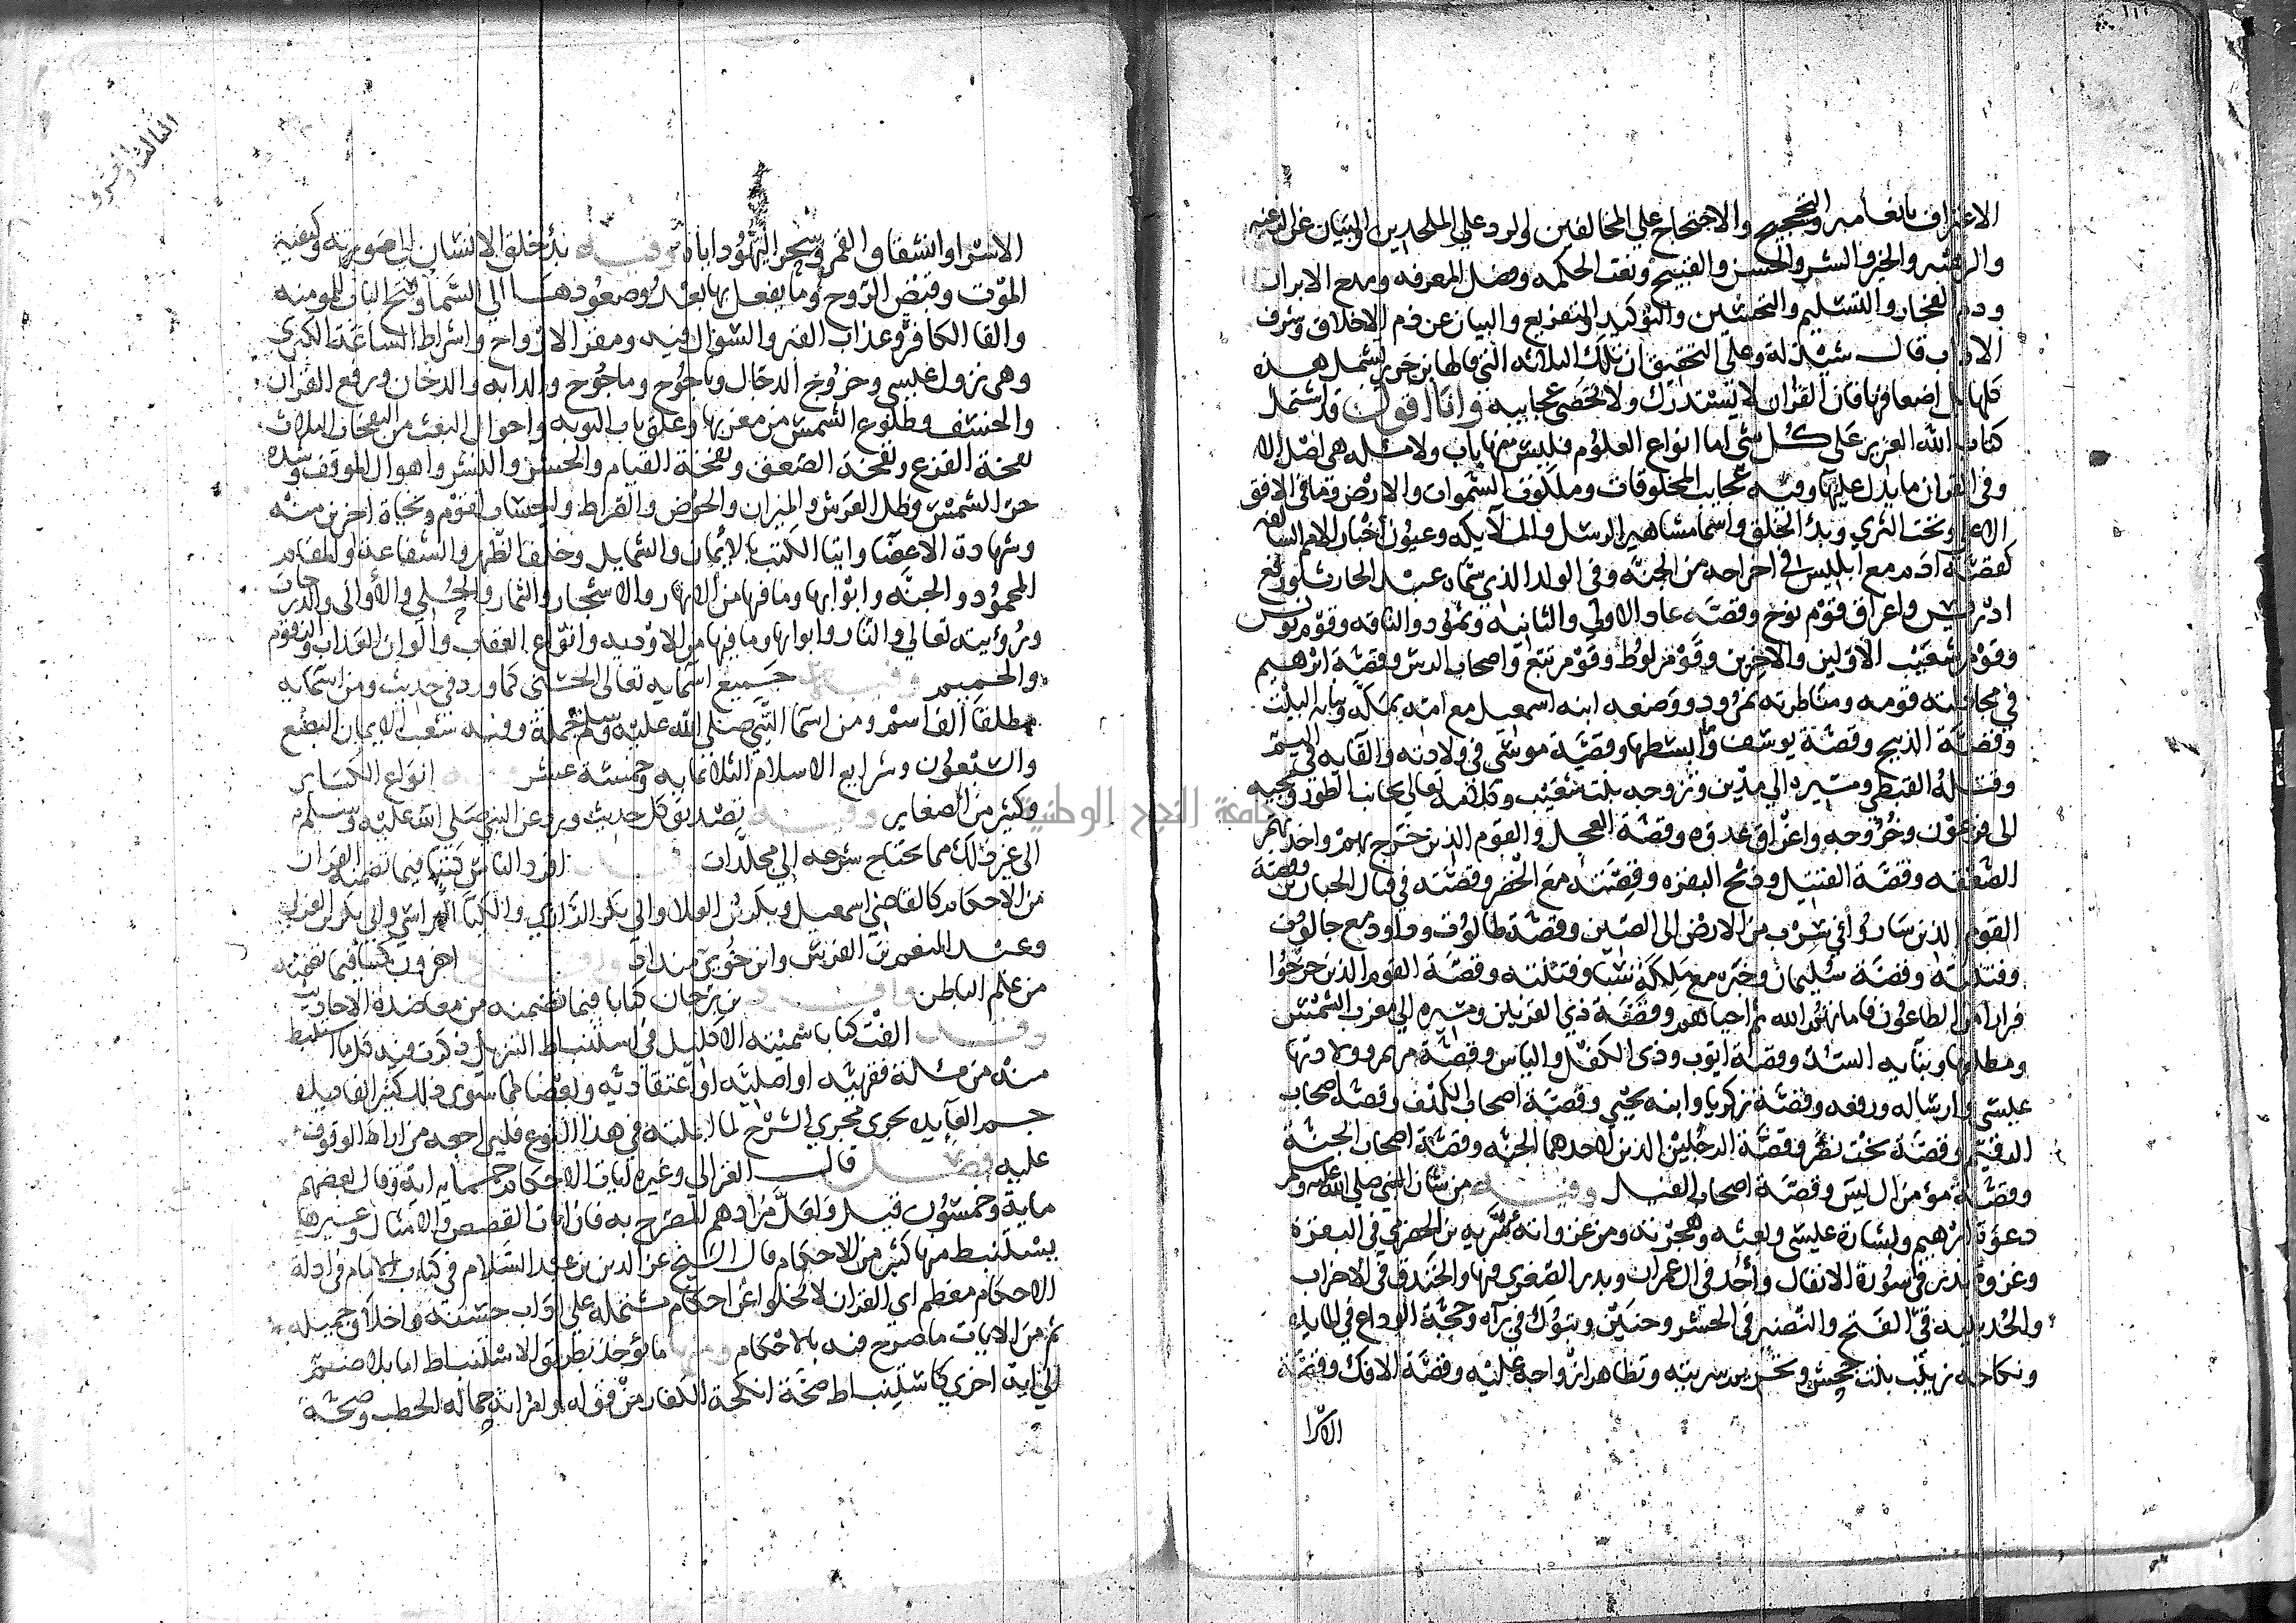 الاعتراف بانعامه والتحجيج والاحتجاج علي المخالفين والرد علي الملحدين والبيان عن الرغبه
والرهبه والخير والشر والحسن والقبيح ونعت الحكمه وفضل المعرفه ومدح الابرار
وذم الفجار والتسليم والتحسين والتوكيد والتقريع والبيان عن ذم الاخلاق وشرف
الاداب قال شيذلة وعلي التحقيق ان تلك الثلاثه التي قالها بن جرير تشمل هذه
كلها بل اضعافها فان القران لا يستدرك ولا تحصي عجايبه وانا اقول قد اشتمل
كتاب الله العزيز علي كل شي اما انواع العلوم فليس منها باب ولا مسله هي اصل الا
وفي القران ما يدل عليها وفيه عجايب المخلوقات وملكوت السموات والارض وما في الافق
الاعلا وتحت الثري وبدا الخلق واسما مشاهير الرسل والملايكه وعيون اخبار الامم السالفه
كقصة ادم مع ابليس في اخراجه من الجنه وفي الولد الذي سماه عبد الحارث ورفع
ادريس واغراق قوم نوح وقصة عاد الاولي والثانيه وثمود والناقه وقوم يونس
وقوم شعيب الاولين والاخرين وقوم لوط وقوم تبع واصحاب الرس وقصة ابرهيم
في مجادلته قومه ومناظرته نمرود ووضعه ابنه اسمعيل مع امه بمكه وبنايه البيت
وقصة الذبيح وقصة يوسف وما ابسطها وقصة موسي في ولادته والقايه في اليم
وقتله القبطي ومسيره الي مدين وتزوجه بنت شعيب وكلامه تعالي بجانب الطور ومجيه
الي فرعون وخروجه واغراق عدوه وقصة العجل والقوم الذين خرج بهم واخذتهم
الصعقه وقصة القتيل وذبح البقره وقصته مع الخضر وقصته في قتال الجبارين وقصة
القوم الذين ساروا في سرب من الارض الي الصين وقصة طالوت وداود مع جالوت
وفتنته وقصة سليمان وخبره مع ملكة سبا وفتنته وقصة القوم الذين خرجوا
فرارا من الطاعون فاماتهم الله ثم احياهم وقصة ذي القرنين ومسيره الي مغرب الشمس
ومطلعها وبنايه السد وقصة ايوب وذي الكفل والياس وقصة مريم وولادتها
عيسي وارساله ورفعه وقصة زكريا وابنه يحيي وقصة اصحاب الكهف وقصة اصحاب
الرقيم وقصة بخت نصر وقصة الرجلين الذين لاحدهما الجنه وقصة اصحاب الجنة
وقصة مؤمن ال يس وقصة اصحاب الفيل وفيه من شان النبي صلي الله عليه وسلم
دعوة ابرهيم وبشارة عيسي وبعثه وهجرته ومن غزواته سرية بن الحضرمي في البقرة
وغزوة بدر في سورة الانفال واحد في ال عمران وبدر الصغري فيها والخندق في الاحزاب
والحديبيه في الفتح والنضير في الحشر وحنين وتبوك في براه وحجة الوداع في المايده
ونكاحه زينب بنت جحش وتحريم سريته وتظاهر ازواجه عليه وقصة الافك وقصة
الاسرا
الثالث والعشرون
الاسرا وانشقاق القمر وسحر اليهود اياه وفيه بدؤ خلق الانسان الي موته وكيفية
الموت وقبض الروح وما يفعل بها بعد وصعودها الي السما وفتح الباب للمومنه
والقا الكافره وعذاب القبر والسوال فيه ومقر الارواح واشراط الساعة الكبري
وهي نزول عيسي وخروج الدجال وياجوج وماجوج والدابه والدخان ورفع القران
والخسف وطلوع الشمس من مغربها وغلق باب التوبه واحوال البعث من النفخات الثلاث
نفخة الفزع ونفخة الصعق ونفخة القيام والحشر والنشر واهوال الموقف وشدة
حر الشمس وظل العرش والميزان والحوض والصراط والحساب لقوم ونجاة اخرين منه
وشهادة الاعضا وايتا الكتب بالايمان والشمايل وخلف الظهر والشفاعة والمقام
المحمود والجنه وابوابها وما فيها من الانهار والاشجار والثمار والحلي والاواني والدرجات
ورؤيته تعالي والنار وابوابها وما فيها من الاوديه وانواع العقاب والوان العذاب والزقوم
والحميم وفيه جميع اسمايه تعالي الحسني كما ورد في حديث ومن اسمايه
مطلقا الف اسم ومن اسما النبي صلي الله عليه وسلم جملة وفيه شعب الايمان البضع
والسبعون وشرايع الاسلام الثلاثمايه وخمسة عشر وفيه انواع الكباير
وكثير من الصغاير وفيه تصديق كل حديث ورد عن النبي صلي الله عليه وسلم
الي غير ذلك مما يحتاج شرحه الي مجلدات افرد الناس كتبا فيما تضمنه القران
من الاحكام كالقاضي اسمعيل وبكر بن العلا وابي بكر الرازي والكيا الهراسي وابي بكر بن العربي
وعبد المنعم بن الفرس وابن خويز منداد وافرد اخرون كتبا فيما تضمنه
من علم الباطن وافرد بن برجان كتابا فيما تضمنه من معاضدة الاحاديث
وقد الفت كتابا سميته الاكليل في استنباط التنزيل ذكرت فيه كل ما استنبط
منه من مسلة فقهيه او اصليه او اعتقاديه وبعضا مما سوي ذلك كثير الفايده
جم العايده يجري مجري الشرح لما اجملته في هذا النوع فليراجعه من اراد الوقوف
عليه فصل قال الغزالي وغيره ايات الاحكام خمسمايه اية وقال بعضهم
ماية وخمسون قيل ولعل مرادهم المصرح به فان ايات القصص والامثال وغيرها
يستنبط منها كثير من الاحكام قال الشيخ عز الدين بن عبد السلام في كتاب الامام في ادلة
الاحكام معظم اي القران لا تخلوا عن احكام مشتمله علي اداب حسنه واخلاق جميله
ثم من الايات ما صرح فيه بالاحكام ومنها ما يؤخذ بطريق الاستنباط اما بلا ضم
الي اية اخري كاستنباط صحة انكحة الكفار من قوله وامراته حمالة الحطب وصحة
جامعة النجاح الوطنية